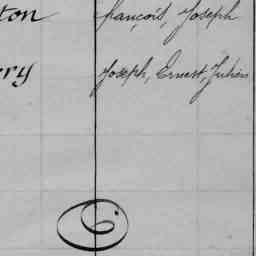 ton françois, Joseph
ry Joseph, Ernest, Julien